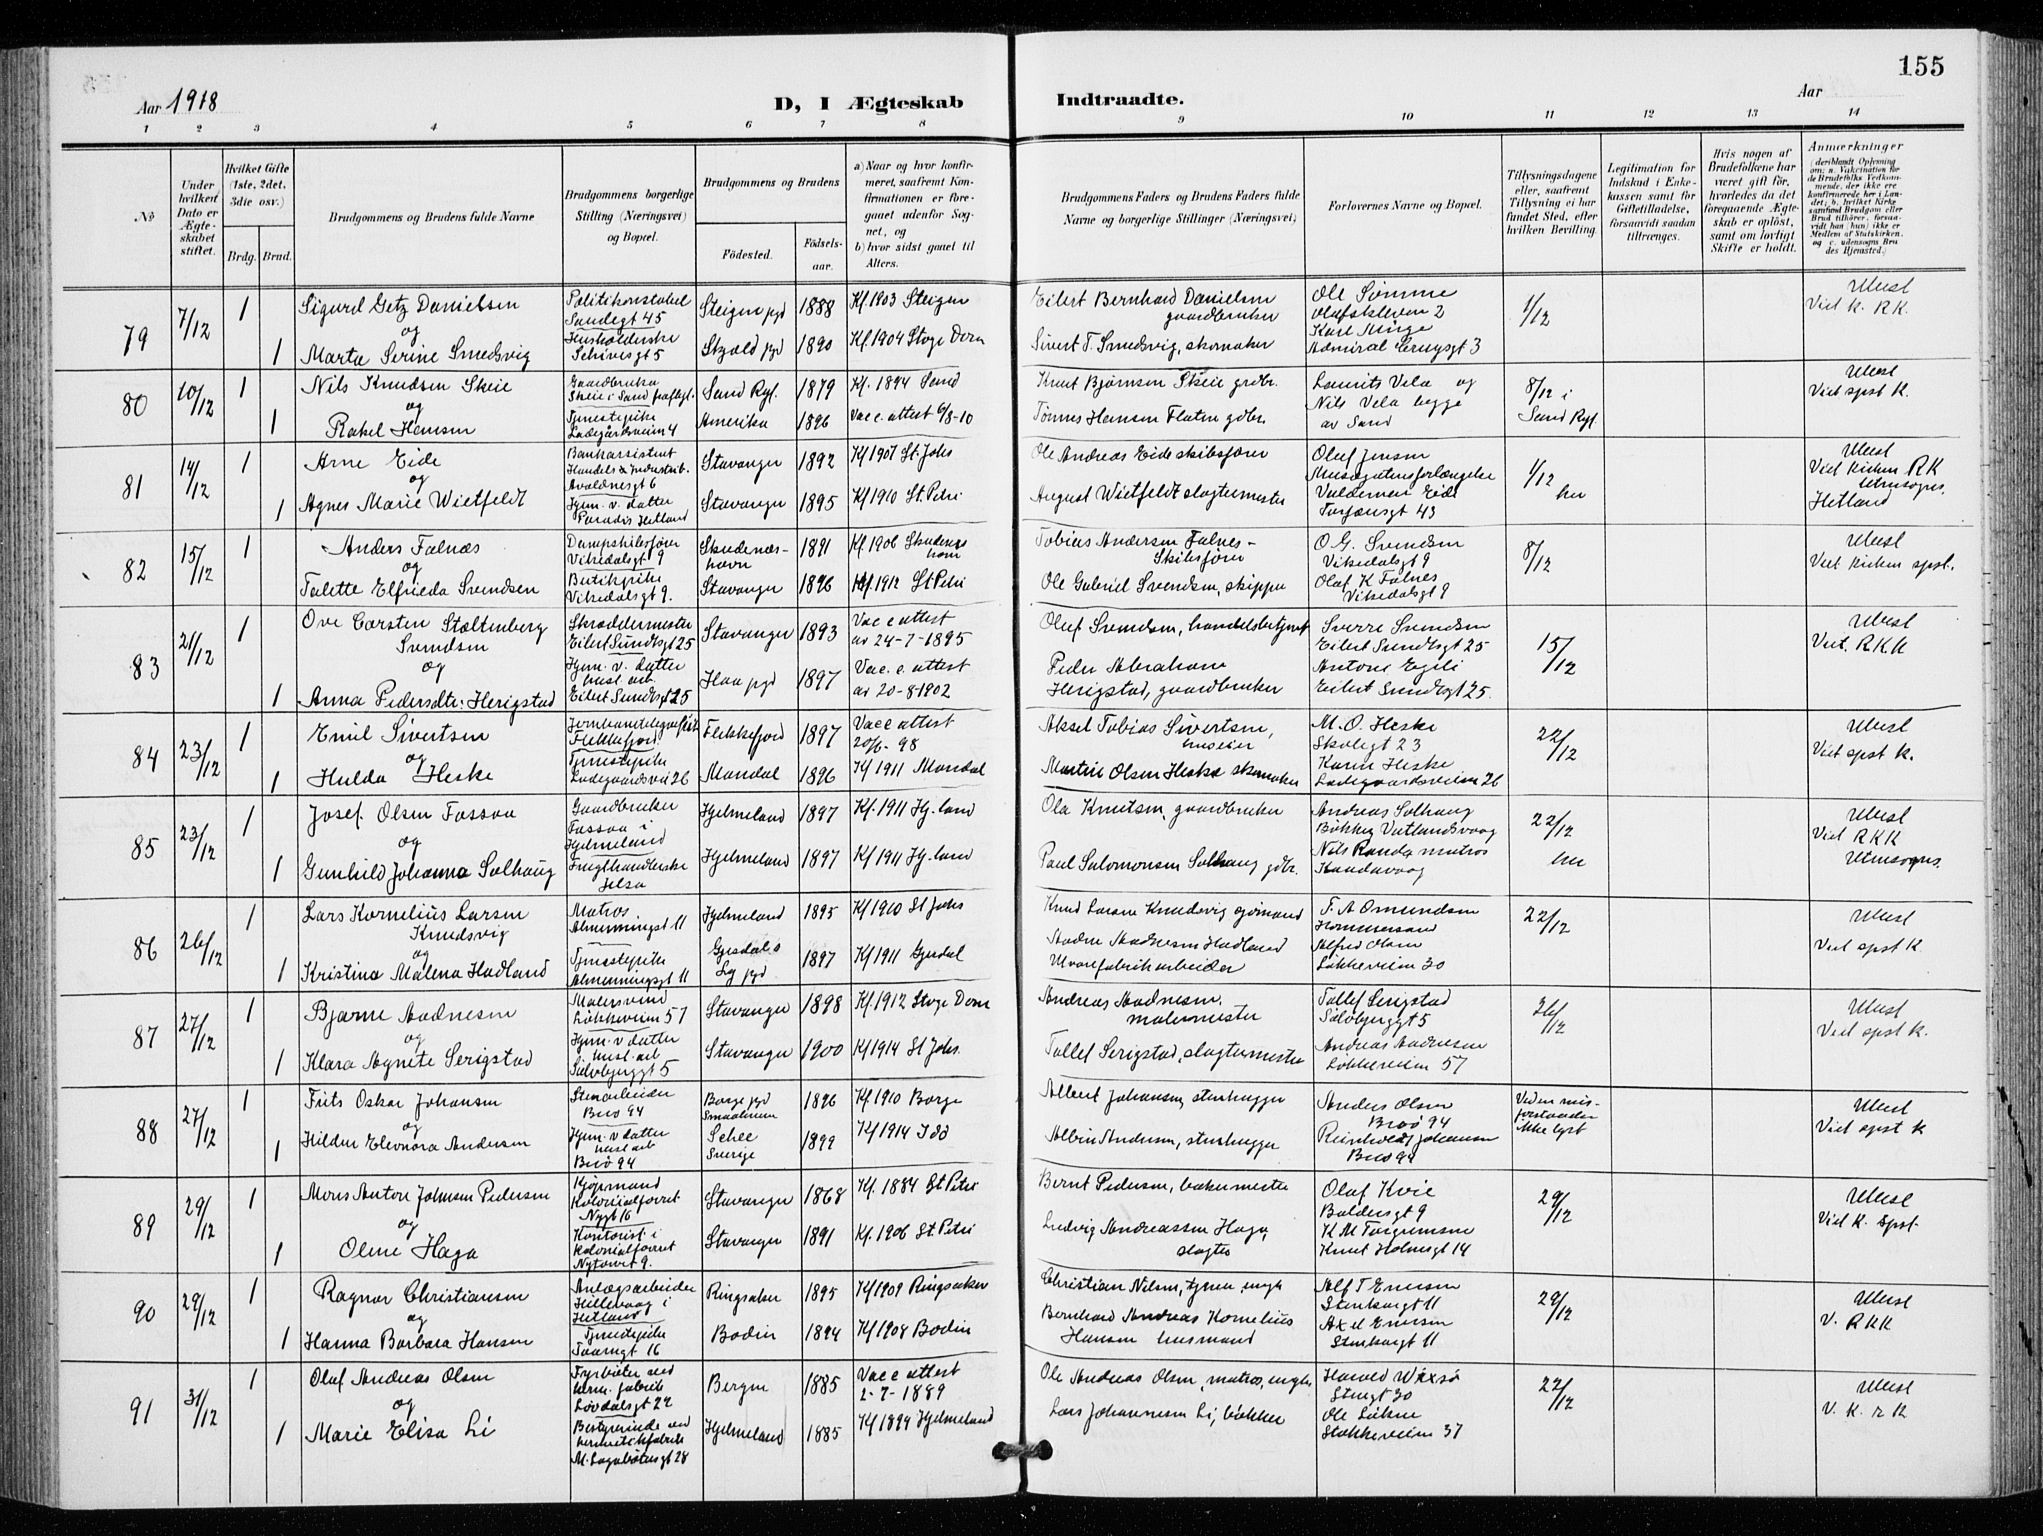 155
Aar 1918
D, I Ægteskab Indtraadte.
Aar
1 2 3 4 5 6 7 8 9 10 11 12 13 14
No
Under hvilken Dato er Ægteskabet stiftet.
Hvilket Gifte (1ste, 2det, 3die osv.)
Brdg. Brud.
Brudgommens og Brudens fulde Navne
Brudgommens borgerlige Stilling (Næringsvei) og Bopæl.
Brudgommens og Brudens
Fødested.
Fødselsaar.
a) Naar og hvor konfirmeret, saafremt Konfirmationen er foregaaet udenfor Sognet, og
b) hvor sidst gaaet til Alters.
Brudgommens Faders og Brudens Faders fulde Navne og borgerlige Stillinger (Næringsvei)
Forlovernes Navne og Bopæl.
Tillysningsdagene eller, saafremt Tillysning ei har fundet Sted, efter hvilken Bevilling.
Legitimation for Indskud i Enkekassen samt for Giftetilladelse, forsaavidt saadan tiltrænges.
Hvis nogen af Brudefolkene har været gift før, hvorledes da det foregaaende Ægteskab er opløst, samt om lovligt Skifte er holdt.
Anmærkninger
(deriblandt Oplysning om: a. Vaccination for de Brudefolks Vedkommende, der ikke ere konfirmerede her i Landet; b. hvilket Kirkesamfund Brudgom eller Brud tilhører, forsaavidt han (hun) ikke er Medlem af Statskirken, og c. udensogns Brudes Hjemsted.)
79 7/12 1 Sigurd Getz Danielsen Politikonstabel Sandegt 45 Steigen pgd 1888 Kf. 1903 Steigen Eilert Bernhard Danielsen gaardbruker Ole Sømme Olafskleven 2 1/12 Viet K. RK.
og
1 Marta Serine Smedsvig Husholderske 5 Skjold pgd 1890 Kf. 1904 Stvgr Dom Sivert T. Smedsvig, skomaker Karl Minge Admiral Cruysgt 3
80 10/12 1 Nils Knudsen Skeie Gaardbruker Skeie i Sand Sand Ryf. 1879 Kf. 1894 Sand Knut Bjørnsen Skeie grdbr. Laurits Vela og 8/12 i Sand Ryf. Viet spst K.
og
1 Rakel Hansen Tjenestepike Ladegårdsveien 4 Amerika 1896 Vacc. attest 6/8-10 Tønnes Hansen Flaten gdbr. Nils Vela begge av Sand
81 14/12 1 Arne Eide Bankassistent Avaldnesgt 6 Stavanger 1892 Kf 1907 St. Johs Ole Andreas Eide skibsfører Oluf Jensen Musegatens forlængelse 1/12 her Viet kirken RK Utensogns. Hetland
og
1 Agnes Marie Wietfeldt Hjem. v. datter Paradis Hetland Stavanger 1895 Kf 1910 St. Petri August Wietfeldt slagtermester Valdemar Eide 43
82 15/12 1 Anders Falnæs Dampskibsfører Vikedalsgt 9 Skudeneshavn 1891 Kf. 1906 Skudeneshavn Tobias Andersen Falnes - Skibsfører O. G. Svendsen Vikedalsgt 9 8/12 Viet kirken spst.
og
1 Talette Elfrieda Svendsen Butikpike Vikedalsgt 9. Stavanger 1896 Kf. 1912 St Petri Ole Gabriel Svendsen, skipper Olaf K Falnes Vikedalsgt 9
83 21/12 1 Ove Carsten Stoltenberg Svendsen Skræddermester Eilert Sundtsgt 25 Stavanger 1893 Vacc attest av 24-7-1895 Oluf Svendsen, handelsbetjent Sverre Svendsen Eilert Sundtsgt 25 15/12 Viet. RKK
og
1 Anna Pedersdtr. Herigstad Hjem. v. datter hust. arb. Eilert Sundtsgt 25 Haa pgd 1897 Vac. c. attest av 20-8-1902 Peder Abraham Herigstad, gaardbruker Antone Egeli Eilert Sundtsgt 25.
84 23/12 1 Emil Sivertsen Flekkefjord Flekkefjord 1897 Vacc attest 20/6-98 Aksel Tobias Sivertsen, huseier M. O. Heske Skolegt 23 22/12 Viet spst K.
og
1 Hulda Heske Tjenestepike Ladegaardsvei 26 Mandal 1896 Kf 1911 Mandal Martin Olsen Heske skomaker Karen Heske Ladegaardsveien 26
85 23/12 1 Josef Olsen Fossaa Gaardbruker Fossaa i Hjelmeland Hjelmeland 1897 Kf. 1911 Hj. land Ola Knutsen, gaardbruker Andreas Solhaug Vatlandsvaag 22/12 her Viet RKK Utensogns.
og
1 Gunhild Johanna Solhaug Frugthandlerske Jelsa Hjelmeland 1897 Kf 1911 Hj. land Paul Salomonsen Solhaug gdbr. Nils Randa matros
86 26/12 1 Lars Kornelius Larsen Knudsvig Matros. Almenningsgt 11 Hjelmeland 1895 Kf 1910 St Johs Knud Larsen Knudsvig sjømand T. A Omundsen Hommersand 22/12 Viet spst K.
og
1 Kristina Malena Hadland Tjenestepike Almenningsgt 11 Gjesdal s Ly pgd 1897 Kf 1911 Gjesdal Aadne Aadnesen Hadland Uldvarefabrikarbeider Alfred Olsen Løkkeveien 30
87 27/12 1 Bjarne Aadnesen Malersvend Løkkeveien 57 Stavanger 1898 Kf. 1912 Stvgr Dom Andreas Aadnesen. malermester Tollef Serigstad Sølvbjerggt 5 26/12 Viet spst K.
og
1 Klara Agnete Serigstad Hjem. v datter hust. arb Sølvbjerggt 5 Stavanger 1900 Kf 1914 St Johs. Tollef Serigstad, slagtermester Andreas Aadnesen Løkkeveien 57
88 27/12 1 Frits Oskar Johansen Stenarbeider Buø 94 Borge pgd Smaalenene 1896 Kf 1910 Borge Albert Johansen, stenhugger Anders Olsen Buø 94 Ved en misforstaaelse ikke lyst Viet spst K
og
1 Hildur Eleonora Andersen Hjem. v datter hust arb Buø 94 Sverige 1899 Kf 1914 Idd Albin Andersen, stenhugger Reinholdt Johansen Buø 94
89 29/12 1 Mons Anton Johnsen Pedersen Kjøpmand Kolonialforret Nygt 16 Stavanger 1868 Kf. 1884 St Petri Bernt Pedersen, bakermester Olaf Kvie Baldersgt 9 29/12 Viet K. Spst.
og
1 Oline Haga Kontorist i kolonialforret Nytorvet 9. Stavanger 1891 Kf. 1906 St. Petri Ludvig Andreassen Haga, slagter K M Torgersen Knut Holmsgt 14
90 29/12 1 Ragnar Christiansen Anlægsarbeider Hillevaag i Hetland Ringsaker 1895 Kf 1909 Ringsaker Christian Nilsen Alf T Enersen Stenhusgt 11 29/12 V. RKK
og
1 Hanna Barbara Hansen Tjenestepike Taarngt 16 Bodin 1894 Kf 1908 Bodin Bernhard Andreas Kornelius Hansen husmand Axel Enersen Stenhusgt 11
91 31/12 1 Olaf Andreas Olsen Fyrbøter ved herm. fabrik Løvdalsgt 22 Bergen 1885 Vacc attest 2-7-1889 Ole Andreas Olsen, matros, Harald Waxsø Stengt 30 22/12 V. K. r K
og
1 Marie Elisa Li Bestyrerinde ved hermetikfabrik M. Lagabøtersgt 28 Hjelmeland 1885 Kf 1894 Hjelmeland Lars Johannesen Li, bøkker Ole Løkne Stokkeveien 37